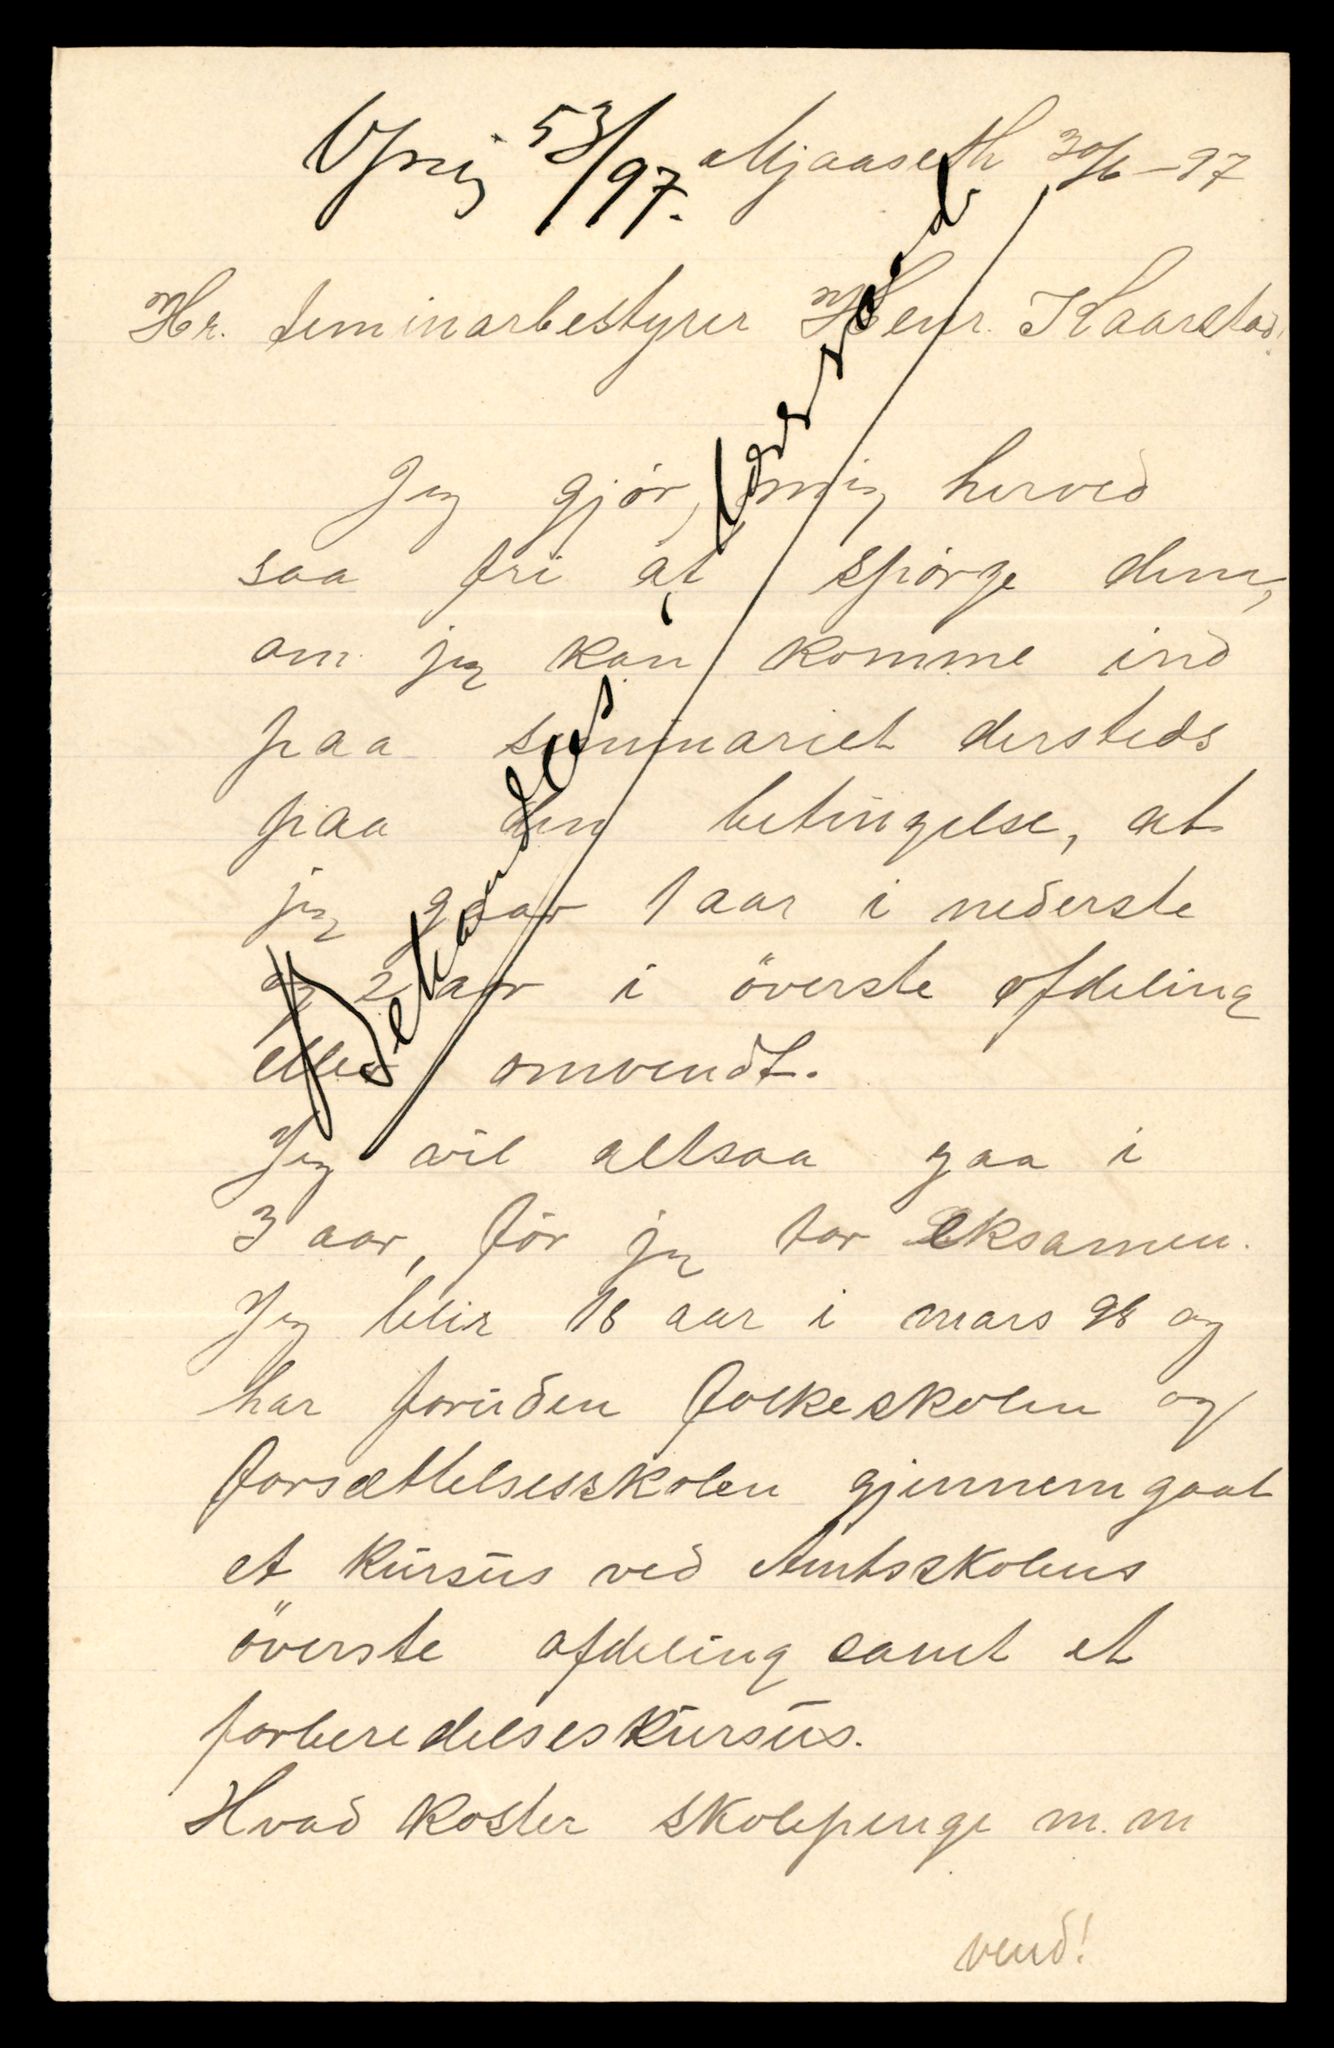 53/97. Mjaaseth 30/6 – 97
Hr. seminarbestyrer Henr. Kaarstad.
Jeg gjør mig herved
saa fri at spørge dem,
om jeg kan komme ind
paa seminariet dersteds
paa den betingelse, at
jeg gaar 1 aar i nederste
og 2 aar i överste afdeling
eller omvendt.
Jeg vil altsaa gaa i
3 aar, før jeg tar eksamen.
Jeg blir 18 aar i mars 98 og
har foruden folkeskolen og
forsættelsesskolen gjennemgaat
et kursus ved Amtsskolens
överste afdeling samt et
forberedelseskursus.
Hvad koster skolepenge m.m
vend!